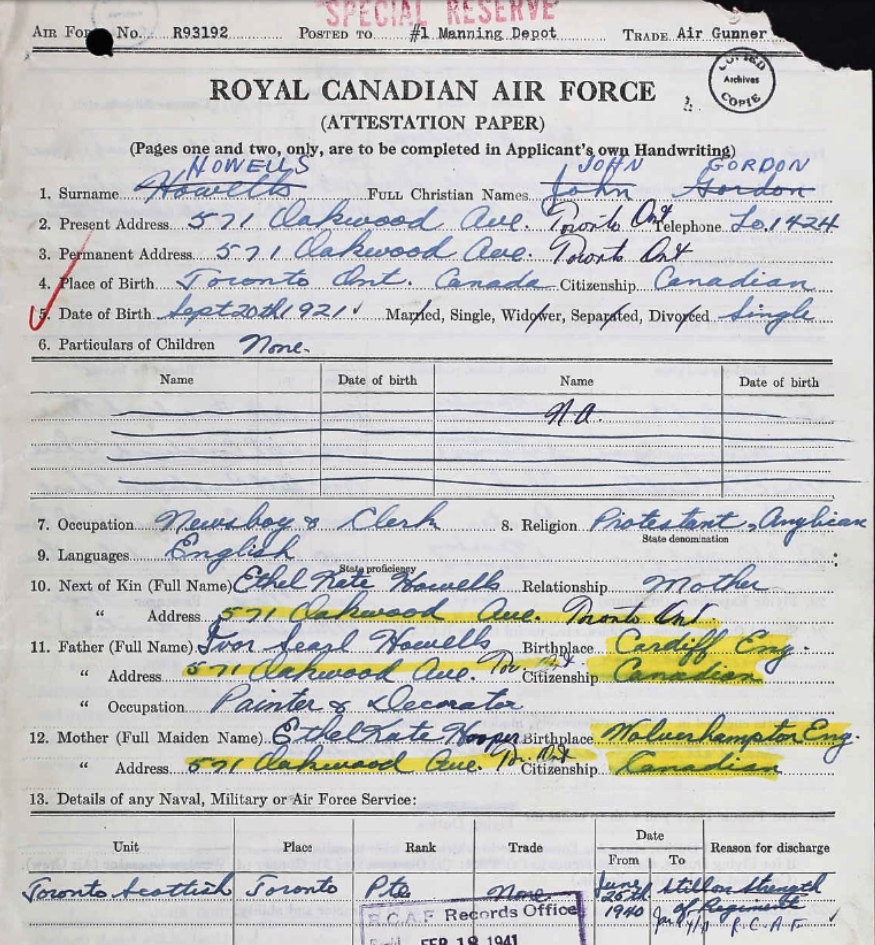 SPECIAL RESERVE
AIR FORCE No. R93192 POSTED TO #1 Manning Depot TRADE Air Gunner
COPIED
Archives
COPIE
ROYAL CANADIAN AIR FORCE
(ATTESTATION PAPER)
(Pages one and two, only, are to be completed in Applicant's own Handwriting)
HOWELLS JOHN GORDON
1. Surname Howells FULL Christian Names John Gordon
2. Present Address 571 Oakwood Ave. Toronto Ont Telephone Lo. 1424
3. Permanent Address 571 Oakwood Ave. Toronto Ont
4. Place of Birth Toronto Ont. Canada Citizenship Canadian
5. Date of Birth Sept 20th 1921 Married, Single, Widower, Separated, Divorced Single
6. Particulars of Children None.
Name Date of birth Name Date of birth
N.A.
7. Occupation Newsboy & Clerk 8. Religion Protestant, Anglican
State denomination
9. Languages English
State proficiency
10. Next of Kin (Full Name) Ethel Kate Howells Relationship Mother
" Address 571 Oakwood Ave. Toronto Ont
11. Father (Full Name) Ivor Searl Howells Birthplace Cardiff Eng.
" Address 571 Oakwood Ave. Tor. Ont. Citizenship Canadian
" Occupation Painter & Decorator
12. Mother (Full Maiden Name) Ethel Kate Hooper Birthplace Wolverhampton Eng.
" Address 571 Oakwood Ave. To. Ont Citizenship Canadian
13. Details of any Naval, Military or Air Force Service:
Unit Place Rank Trade Date Reason for discharge
From To
Toronto Scottish Toronto Pte None June 25th 1940 Still on Strength
of Regiment
R.C.A.F.
R.C.A.F. Records Office
FEB 18 1941